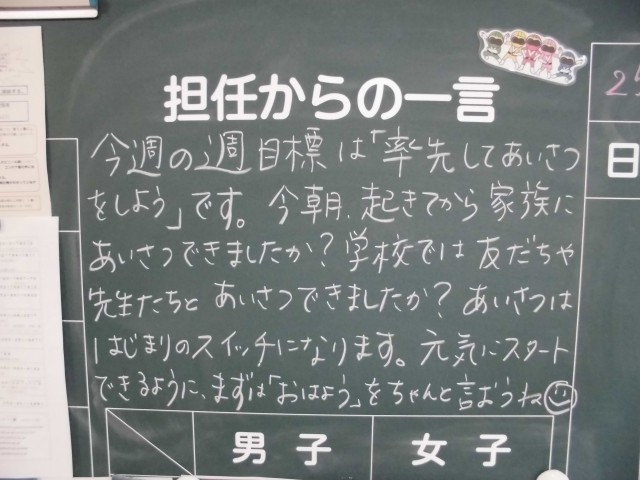 担任からの一言
今週の週目標は「率先してあいさつ
をしよう」です。今朝、起きてから家族に
あいさつできましたか？学校では友だちや
先生たちとあいさつできましたか？あいさつは
はじまりのスイッチになります。元気にスタート
できるように、まずは「おはよう」をちゃんと言おうね
男子
女子
25
日